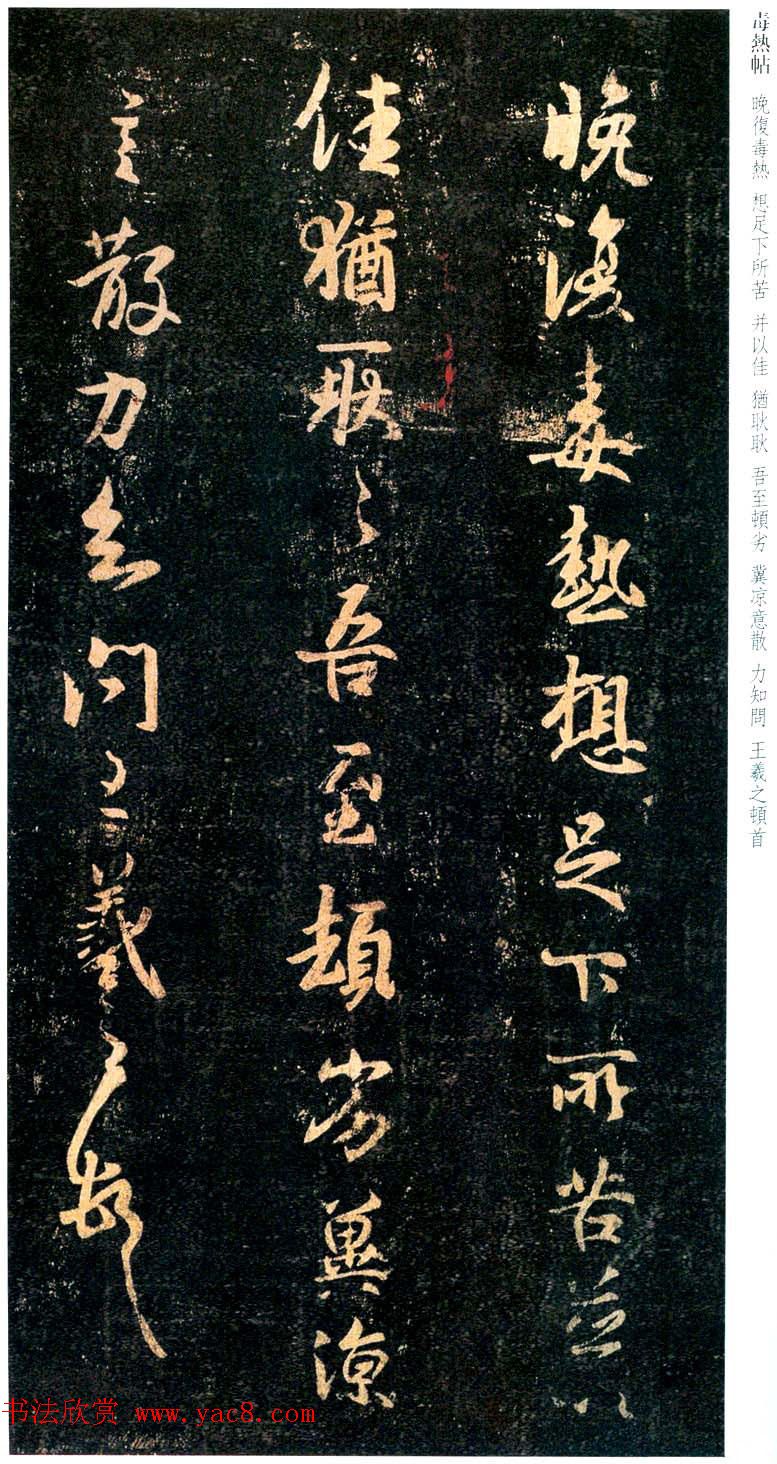 毒熱帖 晚復毒熱 想足下所苦 并以佳 猶耿耿 吾至頓劣 冀凉意散 力知問 王羲之頓首
晚復毒熱想足下所苦并以
佳猶耿〻吾至頓劣冀凉
意散力知問王羲之頓首
书法欣赏 www.yac8.com